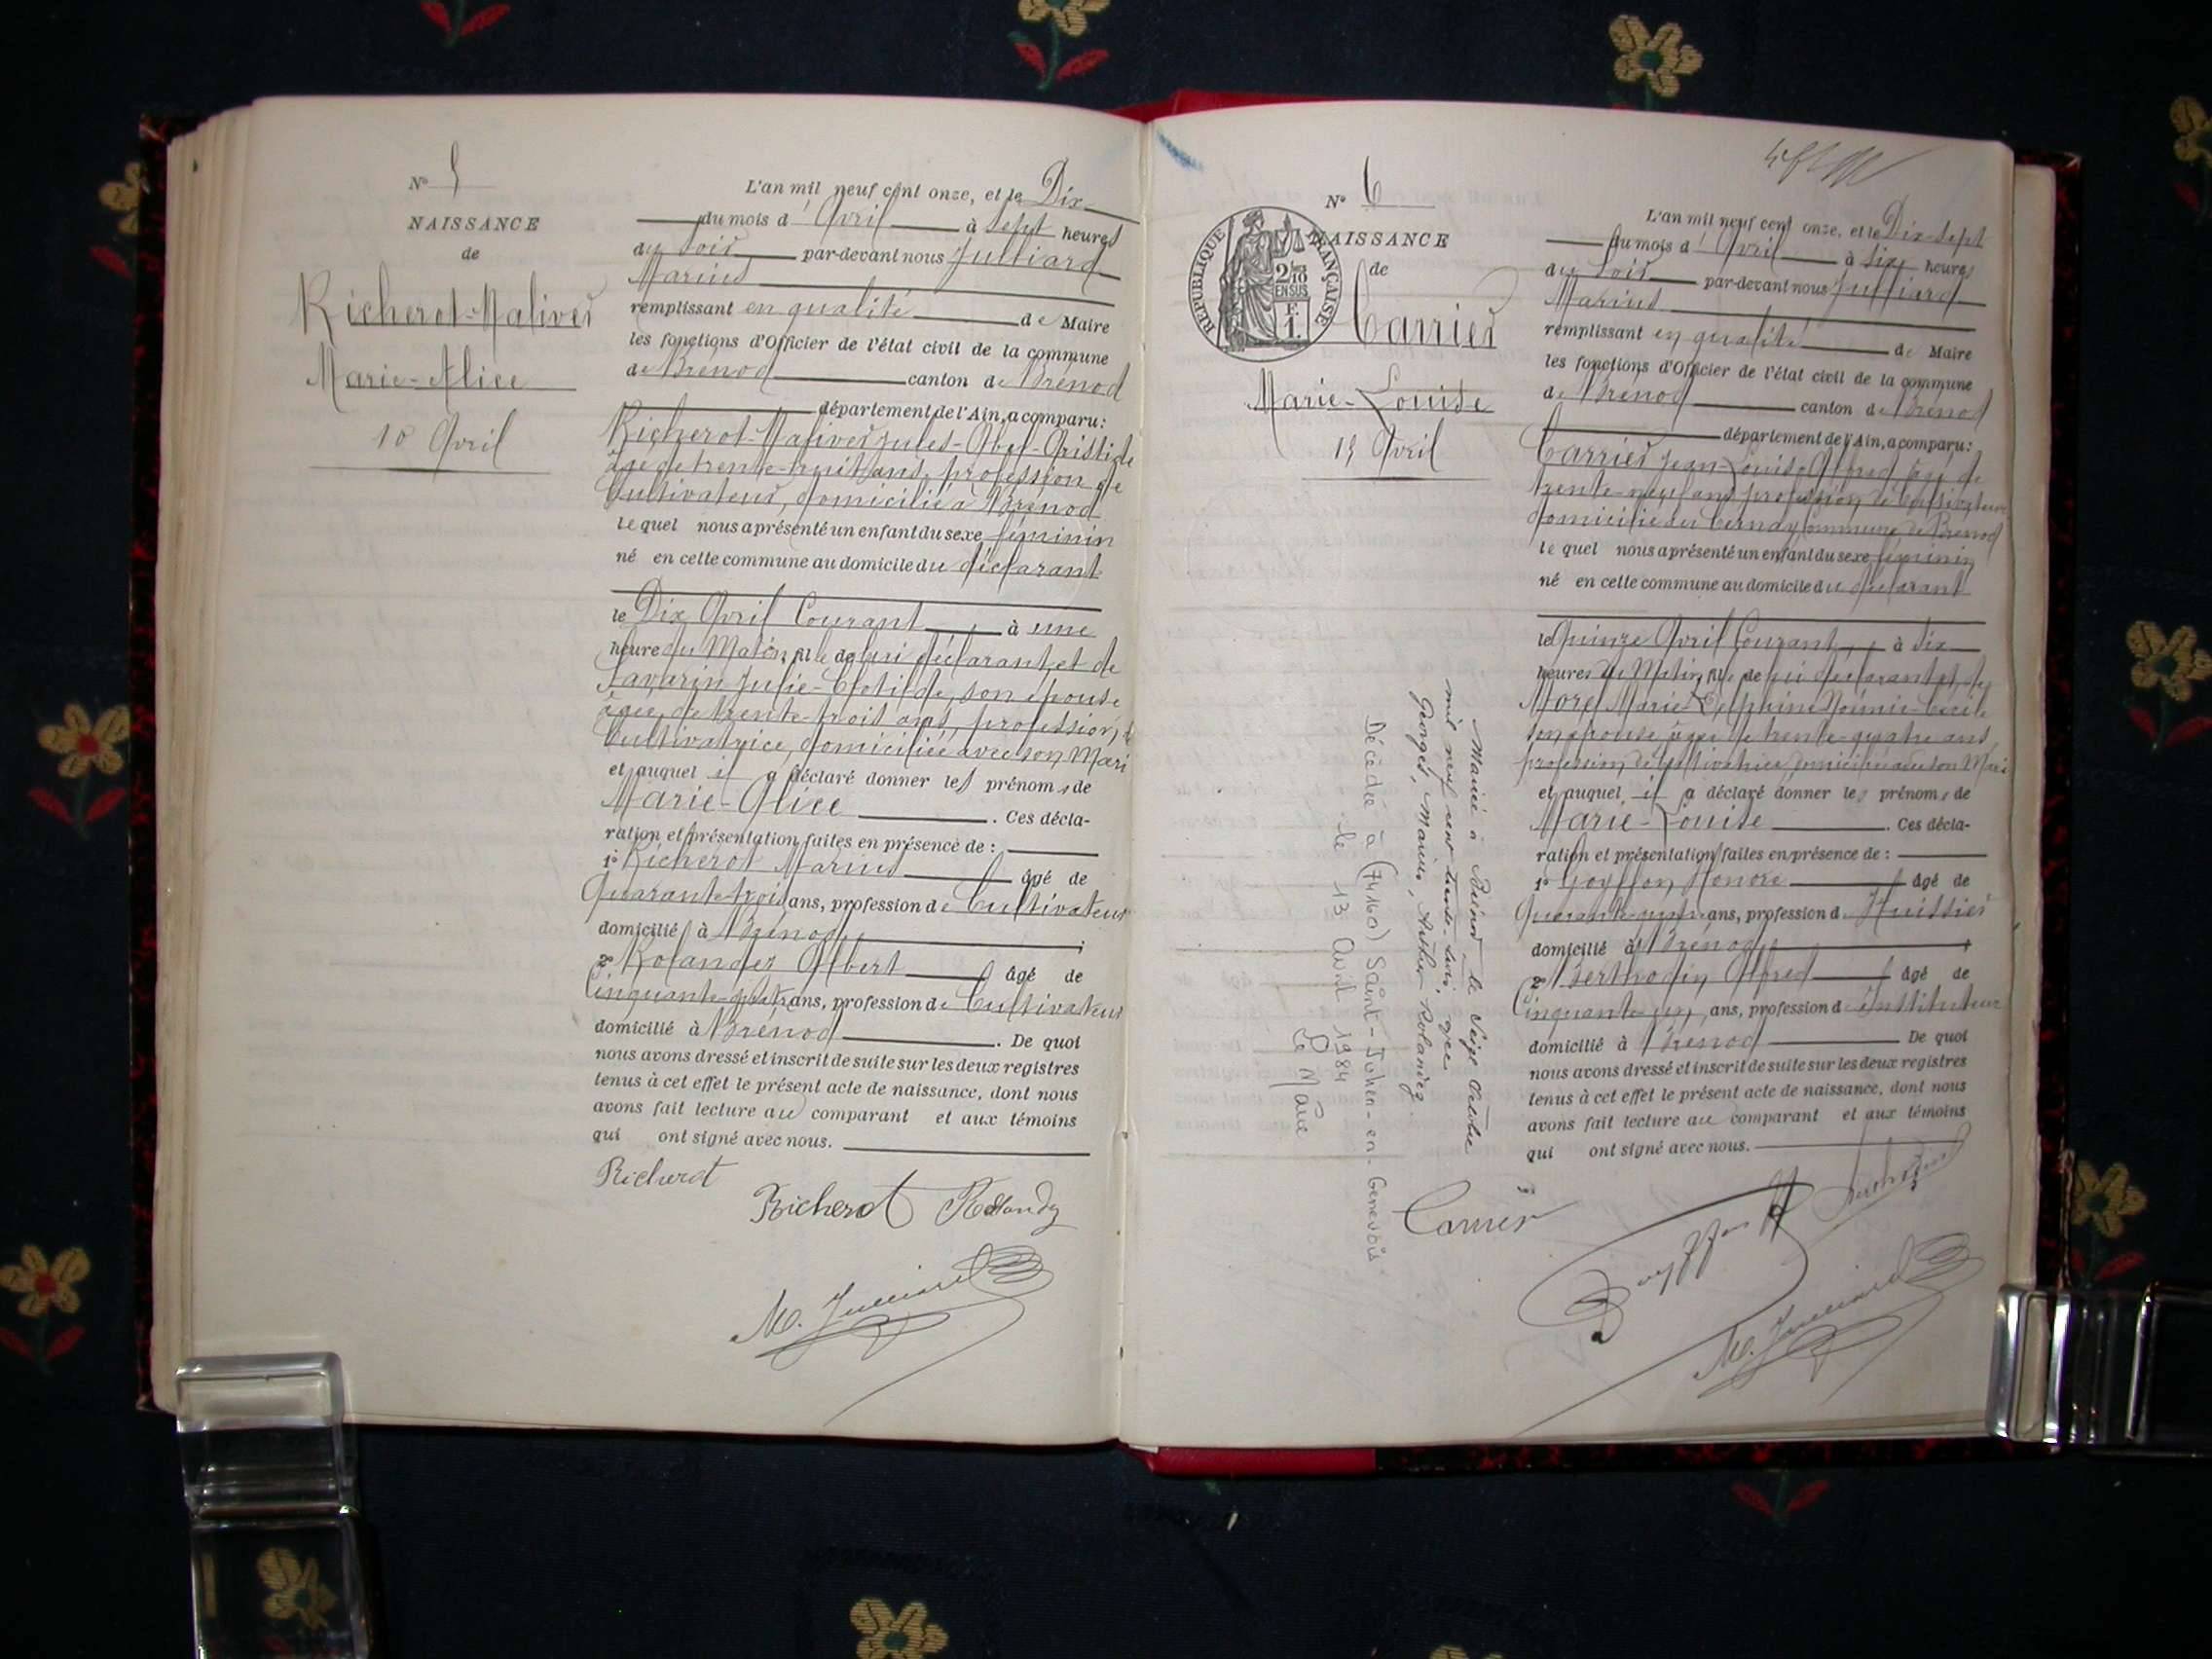 N° 5
NAISSANCE
de
Richerot-Malivers
Marie-Alice
10 Avril
L'an mil neuf cent onze, et le Dix
du mois d'Avril à Sept heures
du Soir par-devant nous Julliard
Marius
remplissant en qualité de Maire
les fonctions d'Officier de l'état civil de la commune
de Brénod canton de Brénod
département de l'Ain, a comparu :
Richerot-Malivers Jules-Abel-Aristide
âgé de trente-huit ans, profession de
Cultivateur, domicilié à Brénod
lequel nous a présenté un enfant du sexe féminin
né en cette commune au domicile du déclarant
le Dix Avril Courant à une
heure du Matin, fille de lui déclarant, et de
Savarin Julie-Clotilde, son épouse,
âgée de trente-trois ans, profession de
Cultivatrice, domiciliée avec son Mari
et auquel il a déclaré donner les prénoms de
Marie-Alice . Ces décla-
ration et présentation faites en présence de :
1° Richerot Marius âgé de
Quarante-trois ans, profession de Cultivateur
domicilié à Brénod ;
2° Rolandez Albert âgé de
Cinquante ans, profession de Cultivateur
domicilié à Brénod . De quoi
nous avons dressé et inscrit de suite sur les deux registres
tenus à cet effet le présent acte de naissance, dont nous
avons fait lecture au comparant et aux témoins
qui ont signé avec nous.
Richerot
Richerot Rollandez
M. Julliard
N° 6
NAISSANCE
de
RÉPUBLIQUE FRANÇAISE
2/10
EN SUS
F.
1.
Carrier
Marie-Louise
15 Avril
Mariée à Brénod le Seize Octobre
mil neuf cent trente-trois avec
Georges, Marius, Arthur Rolandez.
Décédée à (74160) Saint-Julien-en-Genevois
le 13 Avril 1984
Le Maire
L'an mil neuf cent onze, et le Dix-Sept
du mois d'Avril à Six heures
du Soir par-devant nous Julliard
Marius
remplissant en qualité de Maire
les fonctions d'Officier de l'état civil de la commune
de Brénod canton de Brénod
département de l'Ain, a comparu :
Carrier Jean-Louis-Alfred âgé de
trente-neuf ans, profession de Cultivateur
domicilié au Cernay, Commune de Brénod
lequel nous a présenté un enfant du sexe féminin
né en cette commune au domicile du déclarant
le Quinze Avril Courant, à Six
heures du Matin, fille de lui déclarant et de
Morel Marie Delphine Noémie-Cécile
son épouse, âgée de trente-quatre ans,
profession de Cultivatrice, domiciliée avec son Mari
et auquel il a déclaré donner les prénoms de
Marie-Louise . Ces décla-
ration et présentation faites en présence de :
1° Goyffon Honoré âgé de
Quarante ans, profession d'Huissier
domicilié à Brénod ;
2° Berthodin Alfred âgé de
Cinquante ans, profession d'Instituteur
domicilié à Brénod De quoi
nous avons dressé et inscrit de suite sur les deux registres
tenus à cet effet le présent acte de naissance, dont nous
avons fait lecture au comparant et aux témoins
qui ont signé avec nous.
Carrier
Goyffon
M. Julliard